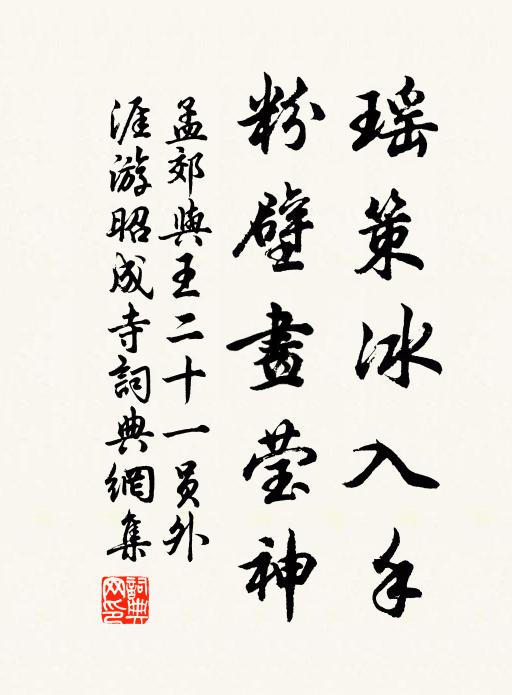 瑶策冰入手
粉壁畫莹神
孟郊與王二十一员外
涯游昭成寺詞典網集
詞典
网印